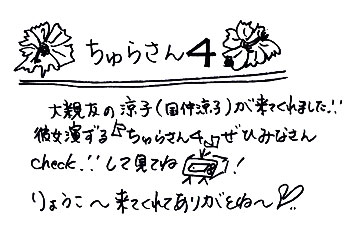 ちゅらさん4
大親友の涼子(国仲涼子)が来てくれました!!
彼女演ずる♪ちゅらさん4♪ぜひみなさん
check!!して見てね!
りょうこ〜来てくれてありがとね〜♡!!